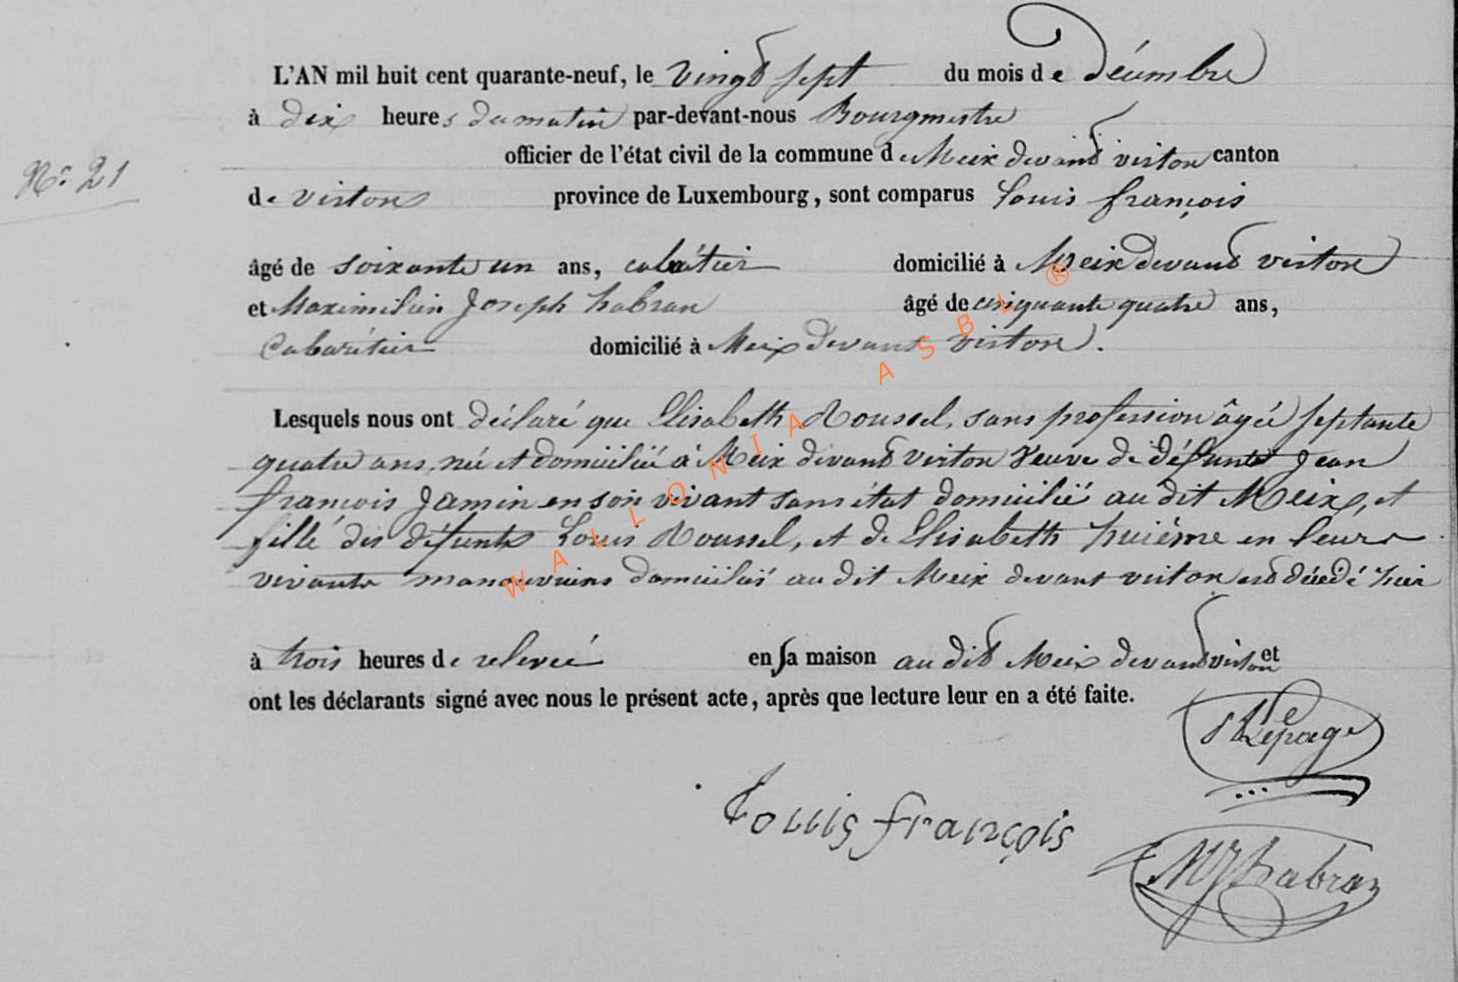 L'AN mil huit cent quarante-neuf, le vingt sept du mois de Décembre
à dix heures du matin par-devant-nous Bourgmestre
officier de l'état civil de la commune de Meix devant virton canton
N° 21
de virton province de Luxembourg, sont comparus Louis françois
âgé de soixante un ans, cabartier domicilié à Meix devant virton
et Maximilien Joseph habran âgé de cinquante quatre ans,
Cabaretier domicilié à Meix devant virton.
Lesquels nous ont déclaré que Elisabeth Roussel, sans profession âgée septante
quatre ans, née et domiciliée à Meix devant virton veuve de défunt Jean
françois Jamin en son vivant sans état domicilié au dit Meix, et
fille des défunts Louis Roussel, et de Elisabeth huième en leurs
vivants manouvriers domiciliés au dit Meix devant virton est décédé hier
à trois heures de relevée en sa maison au dit Meix devant virton et
ont les déclarants signé avec nous le présent acte, après que lecture leur en a été faite.
Lepage
Louis françois
MJ habran
WALLONIA ASBL ®